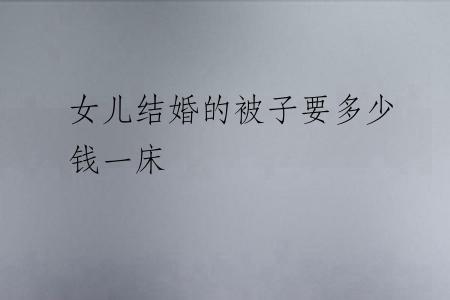 女儿结婚的被子要多少
钱一床